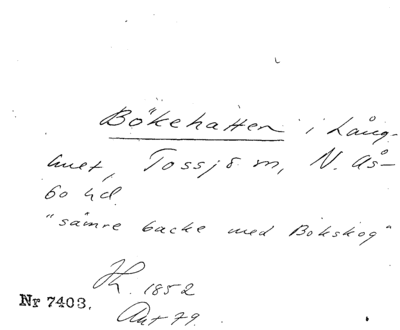 Bökehatten i Lång-
huet, Tossjö m, N. Ås-
bo hd.
"sämre backe med Bokskog"
Hh. 1852
Ant 79.
Nr 7403.